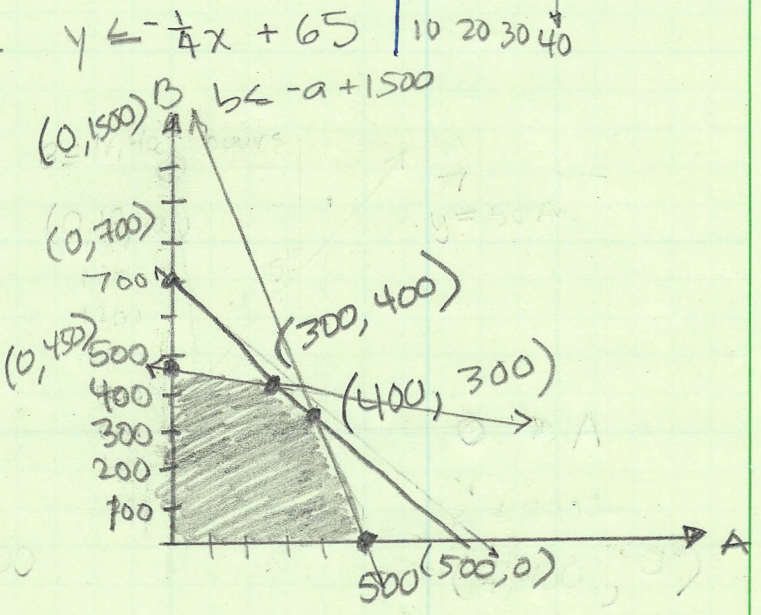 y ≤ -1/4x + 65 | 10 20 30 40
B b ≤ -a + 1500
(0, 1500)
(0, 700)
700
(300, 400)
(0, 450) 500
(400, 300)
400
300
200
100
A
500 (500, 0)